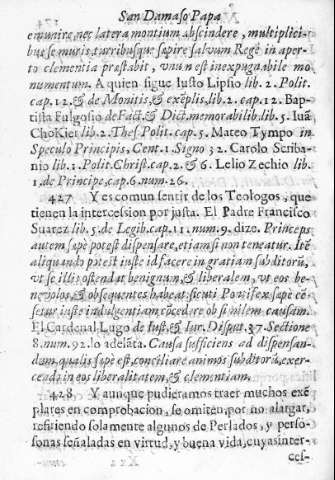 San Damaso Papa
emunire, nec latera montium abscindere, multiplici-
busẽ muris, turribusque sæpire salvum Regẽ in aper-
to clementia præstabit, vnum est inexpugnabile mo
numentum. A quien sigue Iusto Lipsio lib. 2. Polit.
cap. 12. & de Monitis, & exẽplis, lib. 2. cap. 12. Bap-
tista Fulgosio de Fact. & Dict. memorabilib. lib. 5. Iuã
ChoKier lib. 2. Thes. Polit. cap. 5. Mateo Tympo in
Speculo Principis, Cent. 1. Signo 32. Carolo Scriba-
nio lib. 1. Polit. Christ. cap. 2. & 6. Lelio Zechio lib.
1. de Principe, cap. 6. num. 26.
427 Y es comun sentir de los Teologos, que
tienen la intercession por justa. El Padre Francisco
Suarez lib. 5. de Legib. cap. 11. num. 9. dize. Princeps
autem sæpè potest dispensare, etiamsi non teneatur. Itẽ
aliquando potest iustè id facere in gratiam subditorũ,
vt se illis ostendat benignum, & liberalem, vt eos be-
nevolos, & obsequentes habeat: sicuti Pontifex sæpè cẽ-
setur iustè indulgentiam cõcedere ob similem causam.
El Cardenal Lugo de Iust. & Iur. Disput. 37. Sectione
8. num. 92. lo adelãta. Causa sufficiens ad dispensan-
dum, qualis sæpè est, conciliare animos subditorũ, exer-
cendi in eos liberalitatem, & clementiam.
428 Y aunque pudieramos traer muchos exẽ
plares en comprobacion, se omiten, por no alargar,
refiriendo solamente algunos de Perlados, y perso-
sonas señaladas en virtud, y buena vida, cuyas inter-
ces-